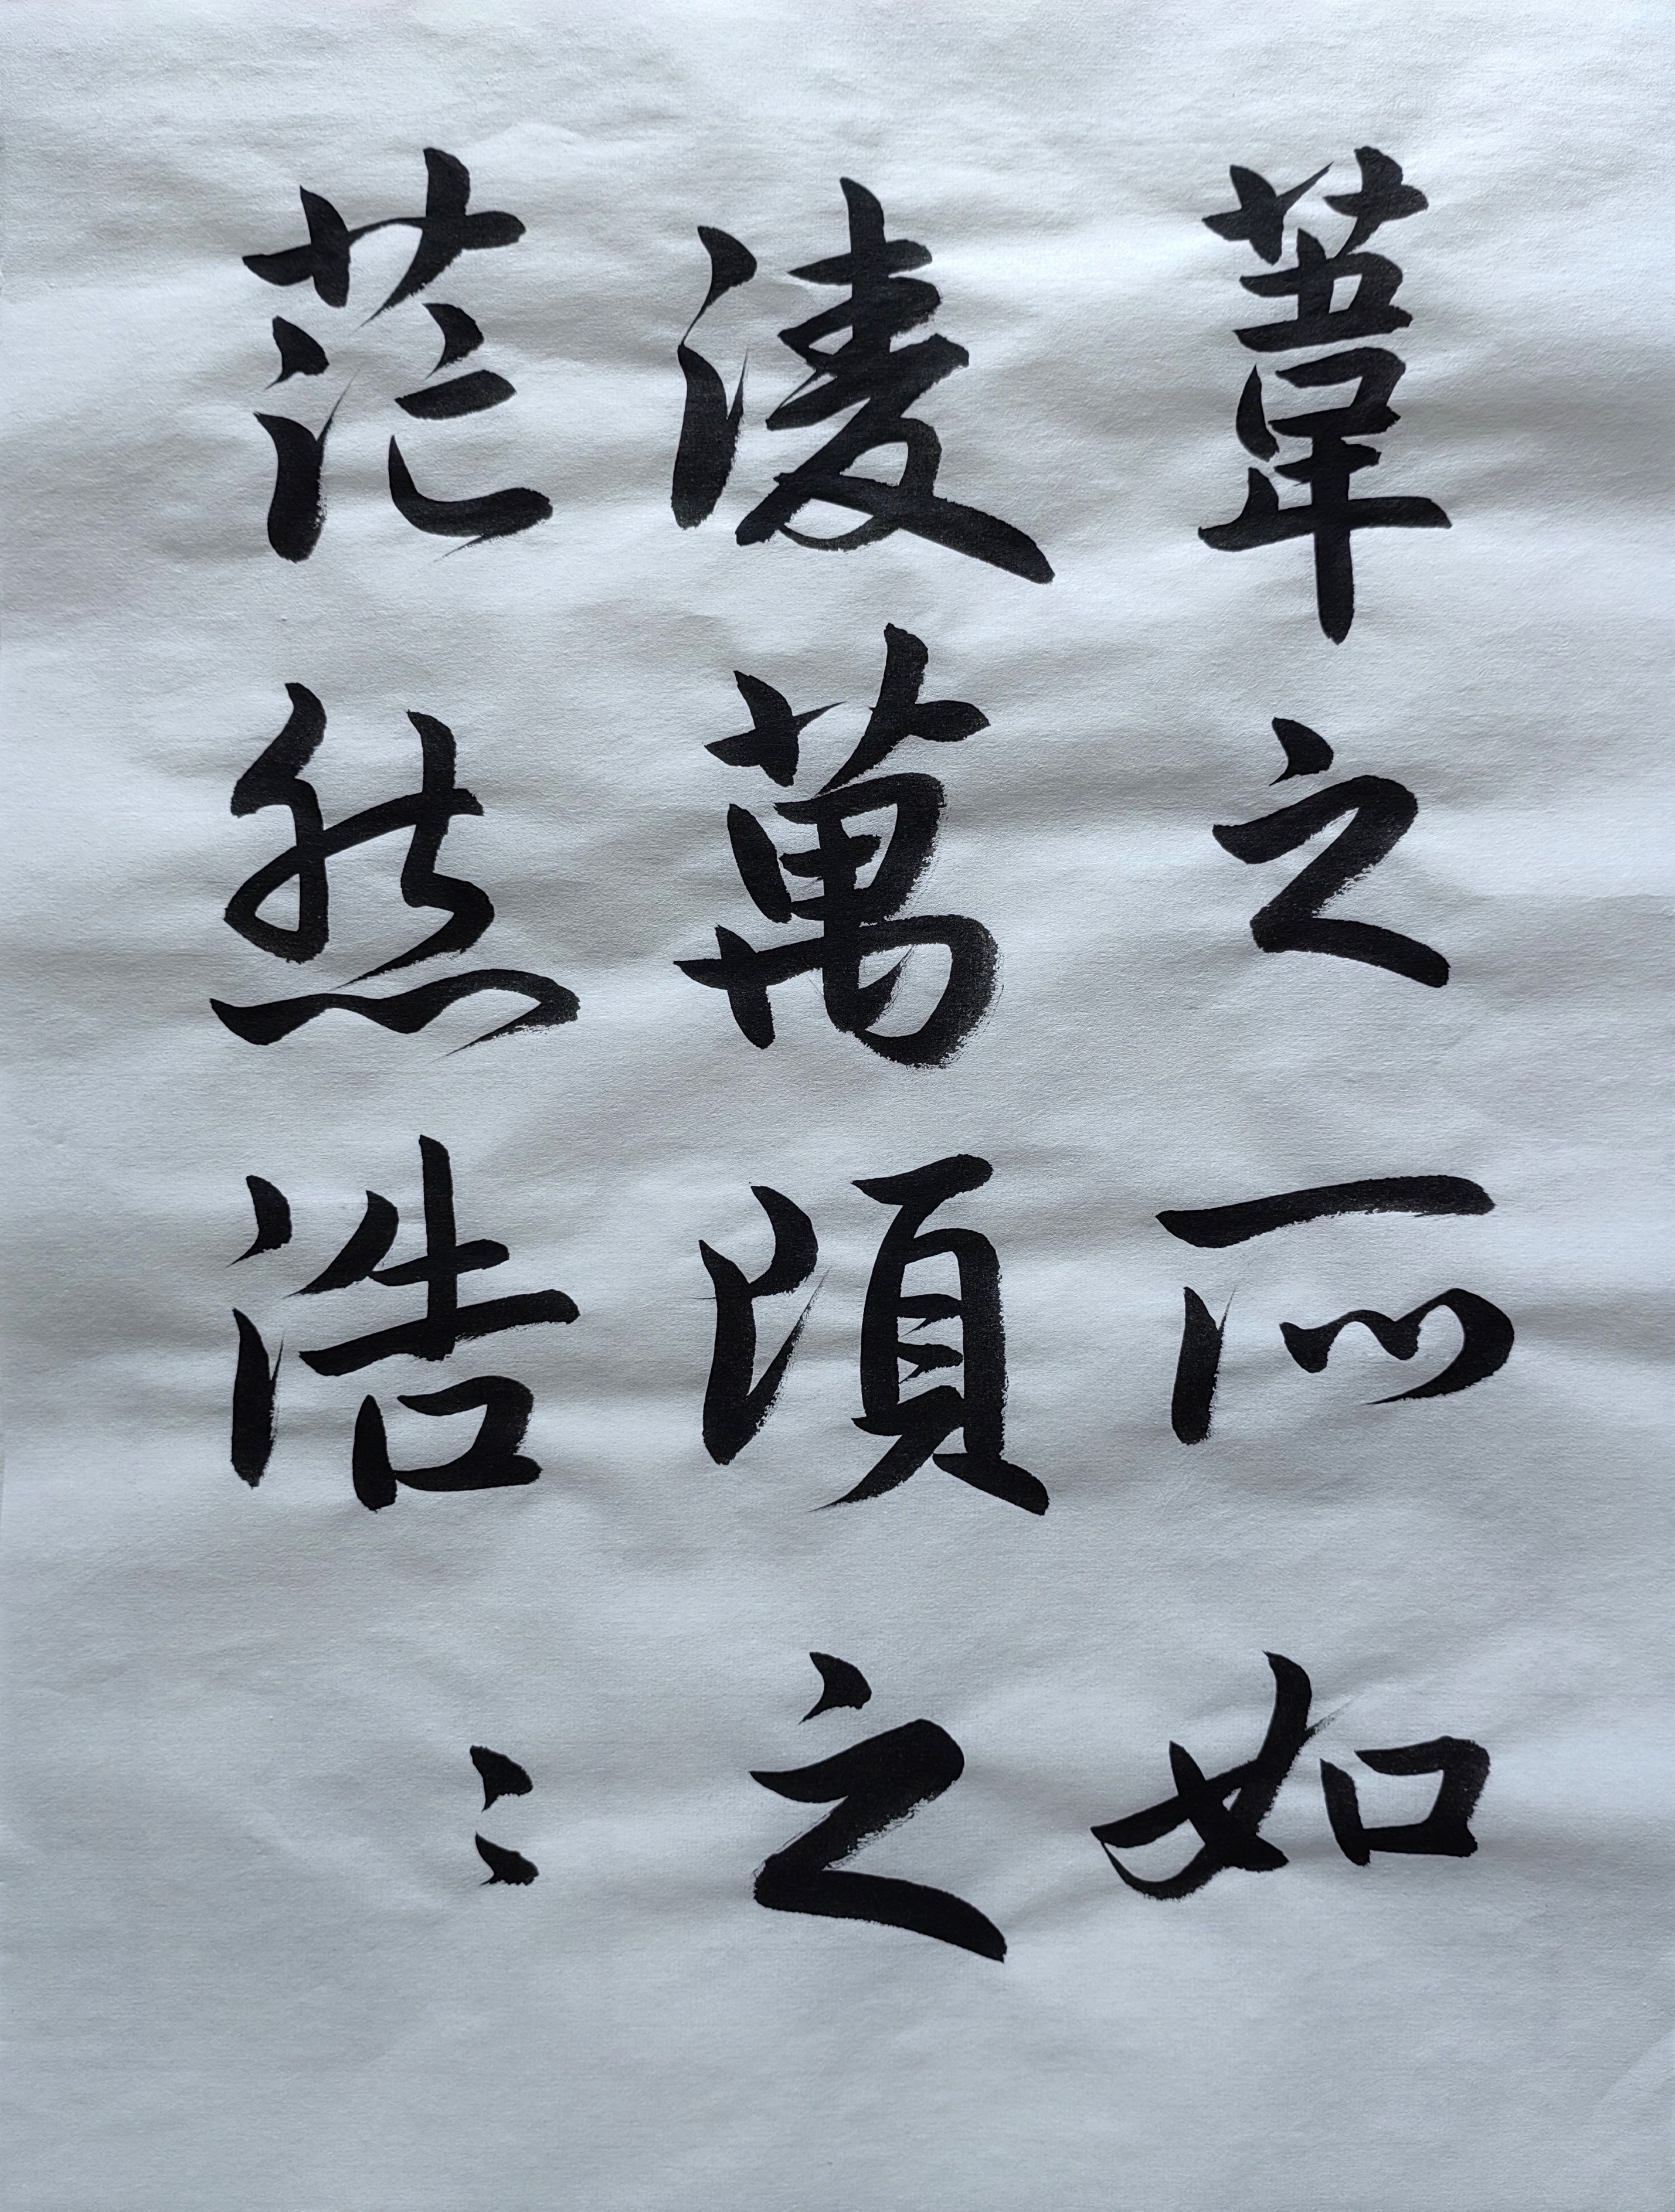 葦之所如
淩萬頃之
茫然浩〻